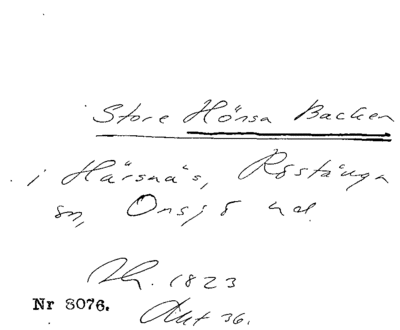 Store Hönsa Backen
i Härsnäs, Röstånga
sn, Onsjö hd.
Th. 1823
Nr 8076.
Akt 36.